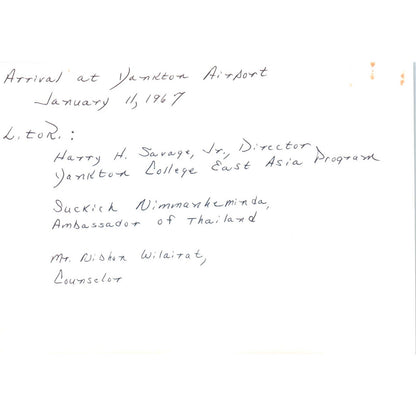 Arrival at Yankton Airport
January 11, 1967
L. to R.:
Harry H. Savage, Jr., Director
Yankton College East Asia Program
Suckich Nimmankeminda,
Ambassador of Thailand
Mr. Nibhon Wilairat,
Counselor